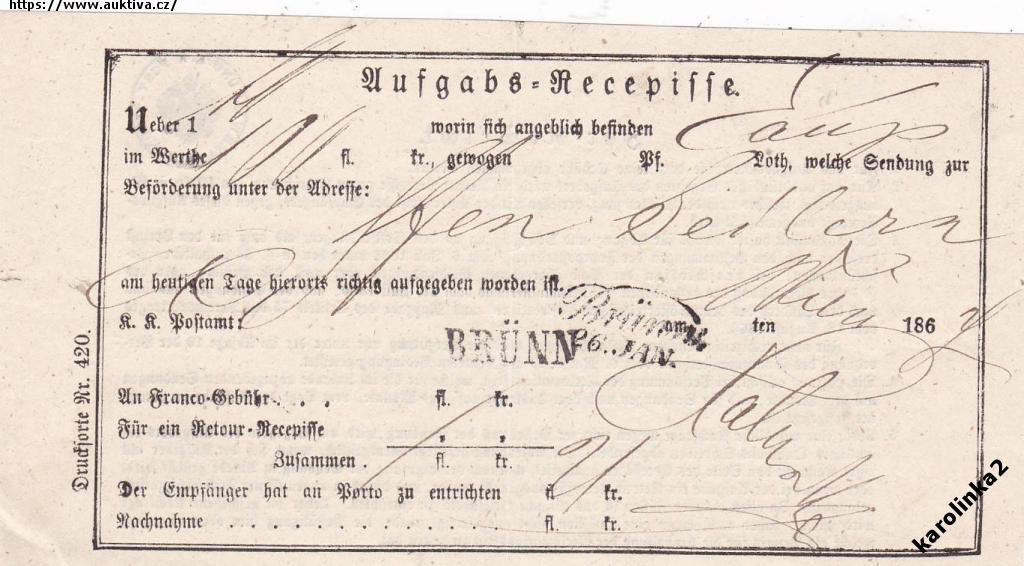 https://www.auktiva.cz/
Aufgabs-Recepisse.
Ueber 1 worin sich angeblich befinden
im Werthe 100 fl. kr., gewogen Pf. Loth, welche Sendung zur
Beförderung unter der Adresse:
am heutigen Tage hierorts richtig aufgegeben worden ist.
Wien
K. K. Postamt: am ten 186
BRÜNN
Brünn
26. JAN.
An Franco-Gebühr . . . fl. kr.
Für ein Retour-Recepisse " "
Zusammen . fl. kr.
Der Empfänger hat an Porto zu entrichten fl kr.
Nachnahme . . . . . . . fl. kr.
Drucksorte Nr. 420.
karolinka2